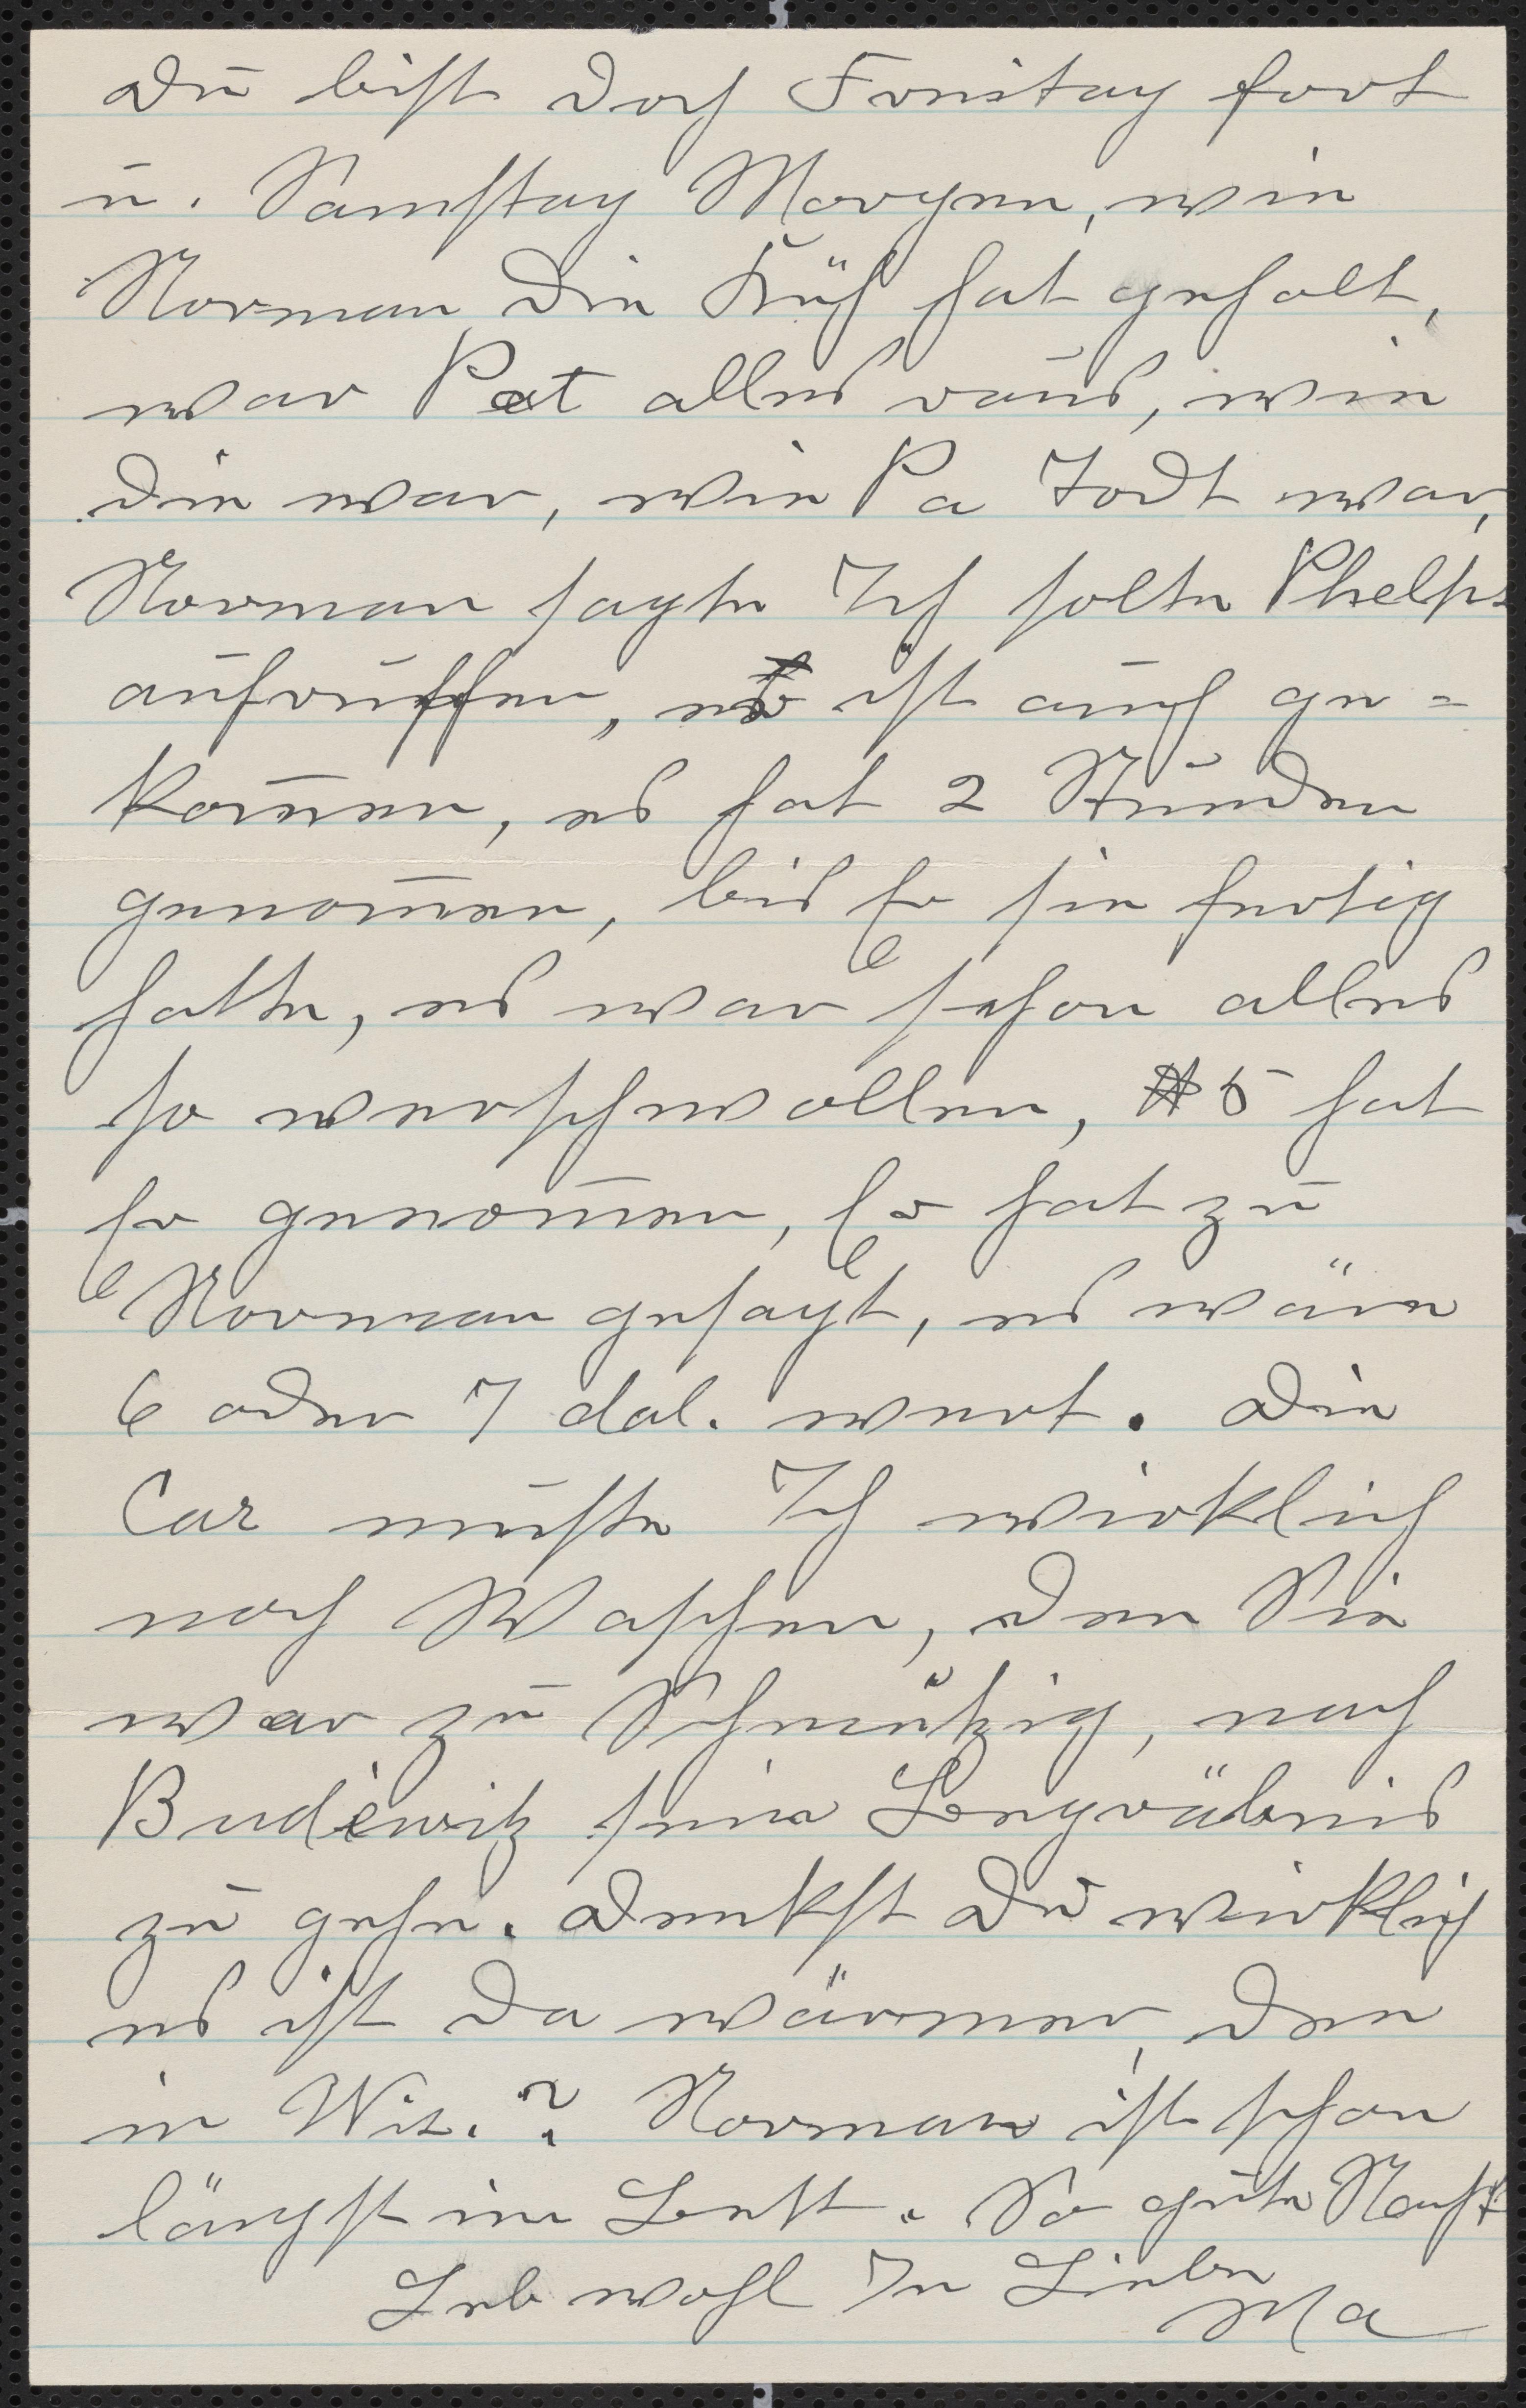 Du bist doch Freitag fort
u. Samstag Morgen, wie
Norman die Küh hat geholt,
war Pet alles raus, wie
die war, wie Pa Todt war,
Norman sagte Ich solte Phelps
aufruffen, er ist auch ge=
kom̄en, es hat 2 Stunden
genom̄en, bis Er sie fertig
hatte, es war schon alles
so werschwollen, $5 hat
Er genom̄en, Er hat zu
Norman gesagt, es wäre
6 oder 7 dol. wert. Die
Car muste Ich wirklich
noch Waschen, den Sie
war zu Schmutzig, nach
Budewitz seine Begräbnis
zu gehe. Denkst Du wirklich
es ist da wärmer, den
in Wis.? Norman ist schon
längst im Bett. So gute Nacht
Leb wohl In Liebe
Ma